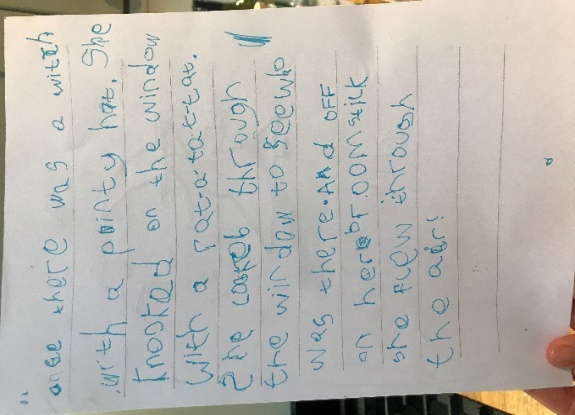 onse there was a witch
with a pointy hat. She
knocked on the window
With a rat-a-tat-tat.
She looked through
the window to see who
was there. And OFF
on her brOOMstick
she flew through
the air!